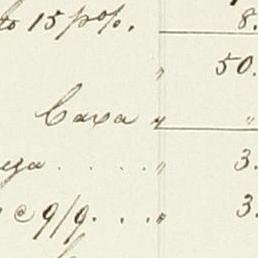 to 15 p%. 8.
" 50.
Caxa " "
ga . . . . " 3.
@ 9/9. . . " 3.